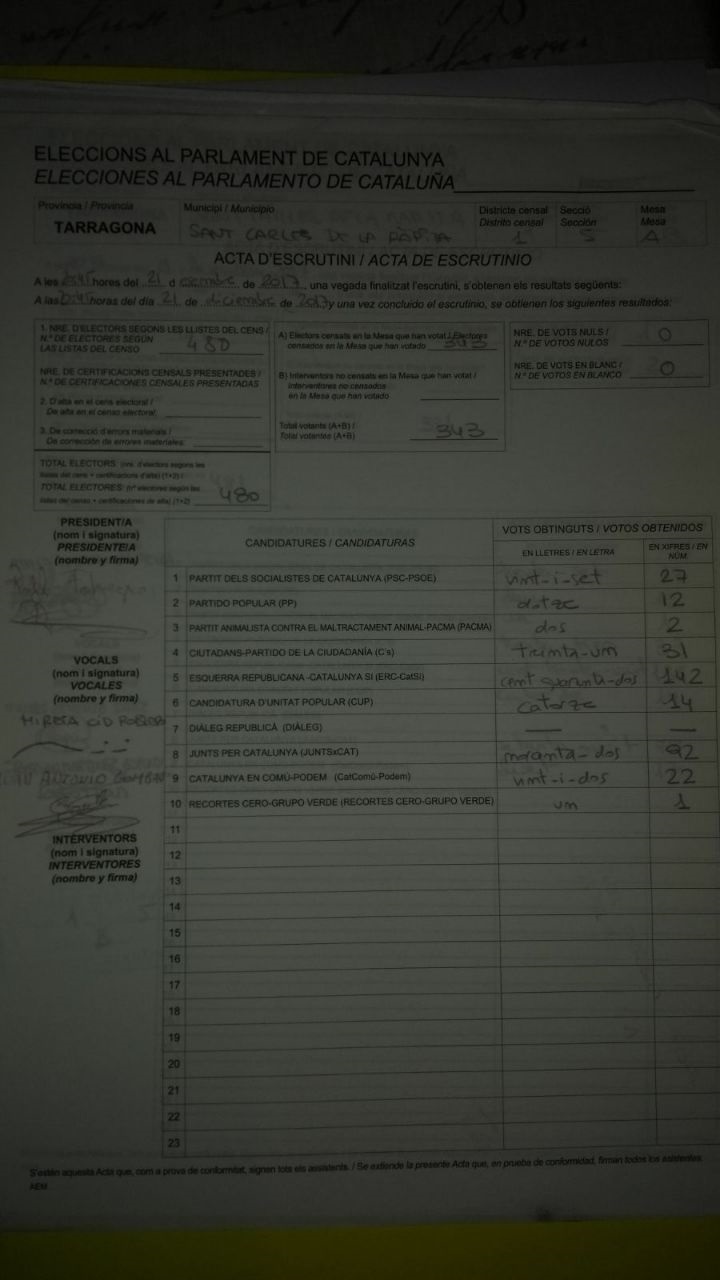 ELECCIONS AL PARLAMENT DE CATALUNYA
ELECCIONES AL PARLAMENTO DE CATALUÑA
Província / Provincia Municipi / Municipio Districte censal Secció Mesa
Distrito censal Sección Mesa
TARRAGONA SANT CARLES DE LA RÀPITA 1 5 A
ACTA D'ESCRUTINI / ACTA DE ESCRUTINIO
A les hores del 21 d de 2017, una vegada finalitzat l'escrutini, s'obtenen els resultats següents:
A las horas del día 21 de diciembre de 2017 y una vez concluido el escrutinio, se obtienen los siguientes resultados:
1. NRE. D'ELECTORS SEGONS LES LLISTES DEL CENS /
N.º DE ELECTORES SEGÚN
LAS LISTAS DEL CENSO 480
NRE. DE CERTIFICACIONS CENSALS PRESENTADES /
N.º DE CERTIFICACIONES CENSALES PRESENTADAS
2. D'alta en el cens electoral /
De alta en el censo electoral:
3. De correcció d'errors materials /
De corrección de errores materiales:
TOTAL ELECTORS: (nre. d'electors segons les
llistes del cens + certificacions d'alta) (1+2) /
TOTAL ELECTORES: (nº electores según las
listas del censo + certificaciones de alta) (1+2) 480
A) Electors censats en la Mesa que han votat / Electores
censados en la Mesa que han votado 343
B) Interventors no censats en la Mesa que han votat /
Interventores no censados
en la Mesa que han votado
Total votants (A+B) /
Total votantes (A+B) 343
NRE. DE VOTS NULS /
N.º DE VOTOS NULOS 0
NRE. DE VOTS EN BLANC /
N.º DE VOTOS EN BLANCO 0
PRESIDENT/A
(nom i signatura)
PRESIDENTE/A
(nombre y firma)
VOCALS
(nom i signatura)
VOCALES
(nombre y firma)
MIREIA CID
ANTONIO
INTERVENTORS
(nom i signatura)
INTERVENTORES
(nombre y firma)
CANDIDATURES / CANDIDATURAS VOTS OBTINGUTS / VOTOS OBTENIDOS
EN LLETRES / EN LETRA EN XIFRES / EN NÚM
1 PARTIT DELS SOCIALISTES DE CATALUNYA (PSC-PSOE) vint-i-set 27
2 PARTIDO POPULAR (PP) dotze 12
3 PARTIT ANIMALISTA CONTRA EL MALTRACTAMENT ANIMAL-PACMA (PACMA) dos 2
4 CIUTADANS-PARTIDO DE LA CIUDADANÍA (C's) trenta-un 31
5 ESQUERRA REPUBLICANA -CATALUNYA SÍ (ERC-CatSí) cent quaranta-dos 142
6 CANDIDATURA D'UNITAT POPULAR (CUP) catorze 14
7 DIÀLEG REPUBLICÀ (DIÀLEG) — —
8 JUNTS PER CATALUNYA (JUNTSxCAT) noranta-dos 92
9 CATALUNYA EN COMÚ-PODEM (CatComú-Podem) vint-i-dos 22
10 RECORTES CERO-GRUPO VERDE (RECORTES CERO-GRUPO VERDE) un 1
11
12
13
14
15
16
17
18
19
20
21
22
23
S'estén aquesta Acta que, com a prova de conformitat, signen tots els assistents. / Se extiende la presente Acta que, en prueba de conformidad, firman todos los asistentes.